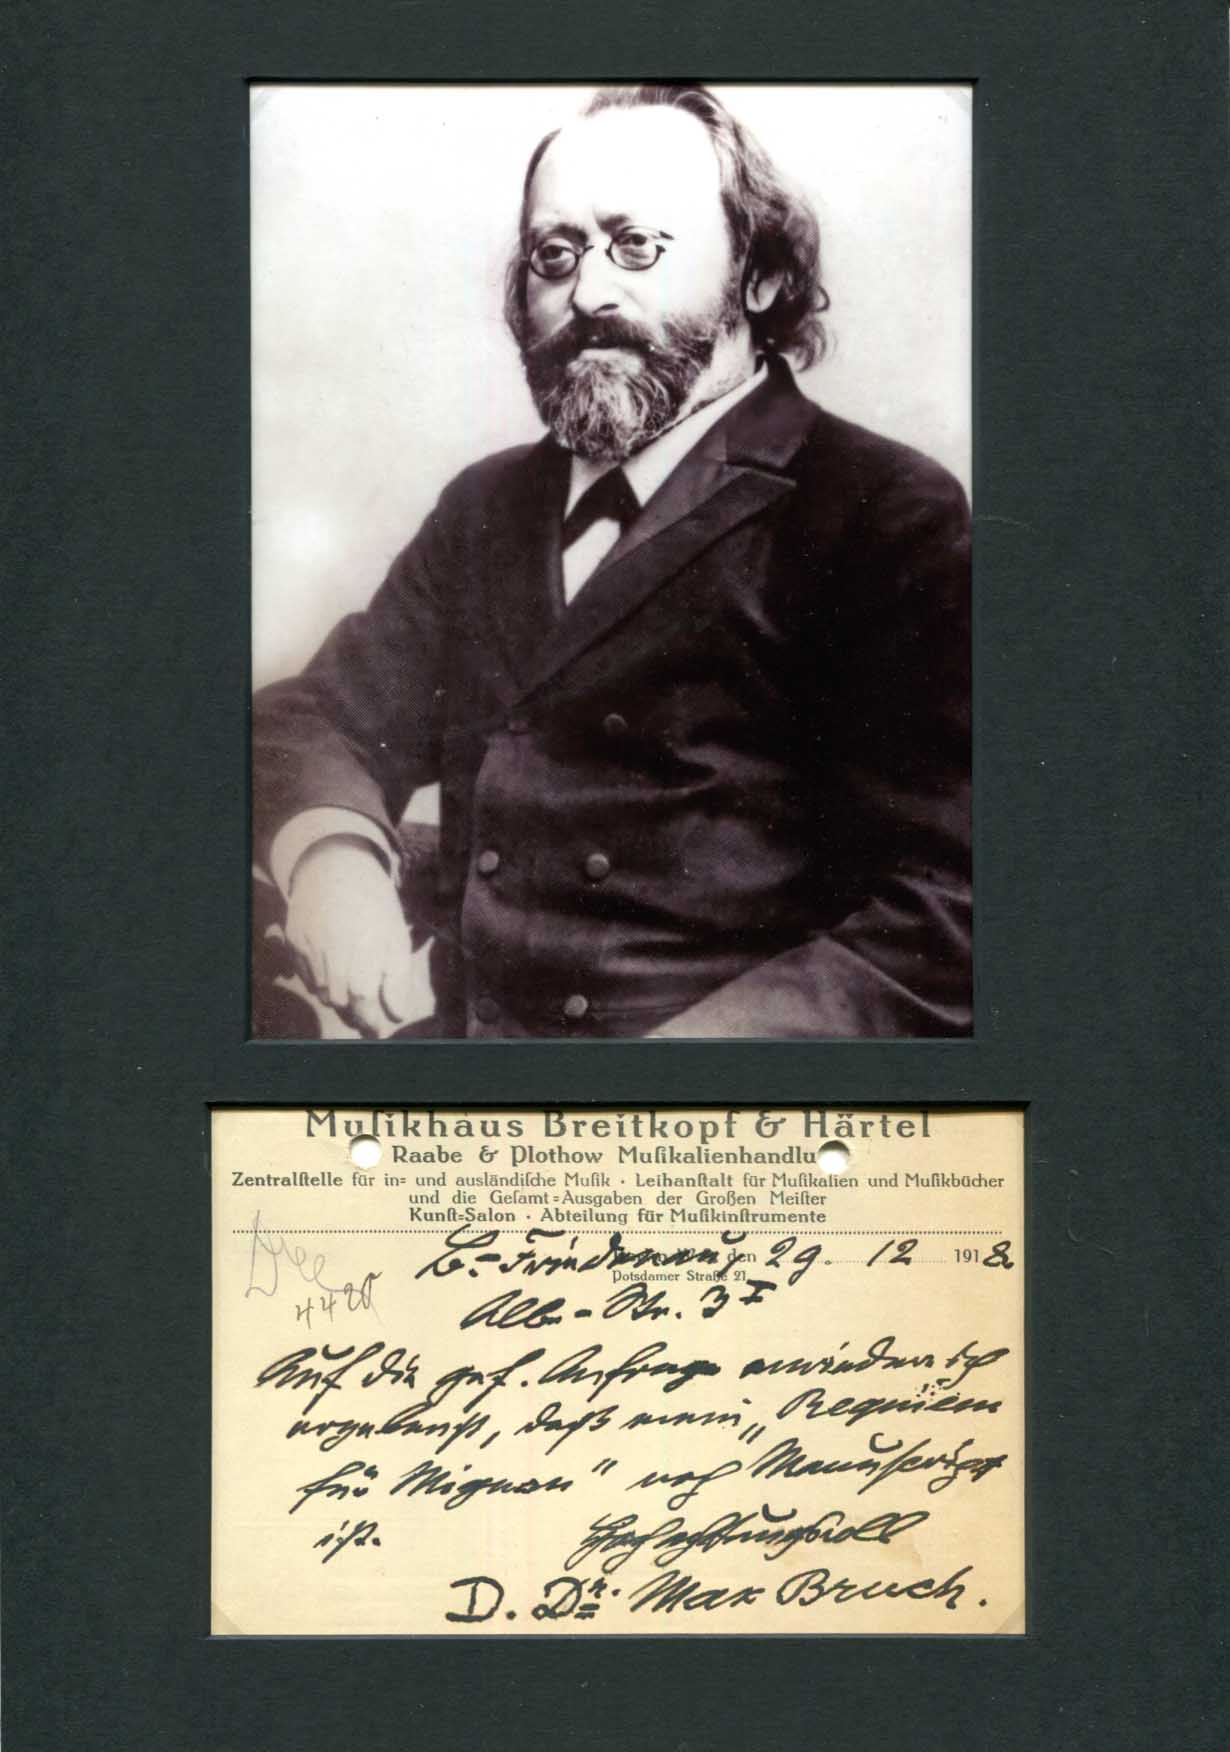 Muſikhaus Breitkopf & Härtel
Raabe & Plothow Muſikalienhandlu
Zentralſtelle für in= und ausländiſche Muſik · Leihanſtalt für Muſikalien und Muſikbücher
und die Geſamt=Ausgaben der Großen Meiſter
Kunſt=Salon · Abteilung für Muſikinſtrumente
B.-Friedenau, den 29. 12 1918.
Potsdamer Straße 21
Albe-Str. 3 I
4420
Auf die gef. Anfrage erwiedere ich
ergebenst, daß mein „Requiem
für Mignon" noch Manuscript
ist. Hochachtungsvoll
D. Dr. Max Bruch.